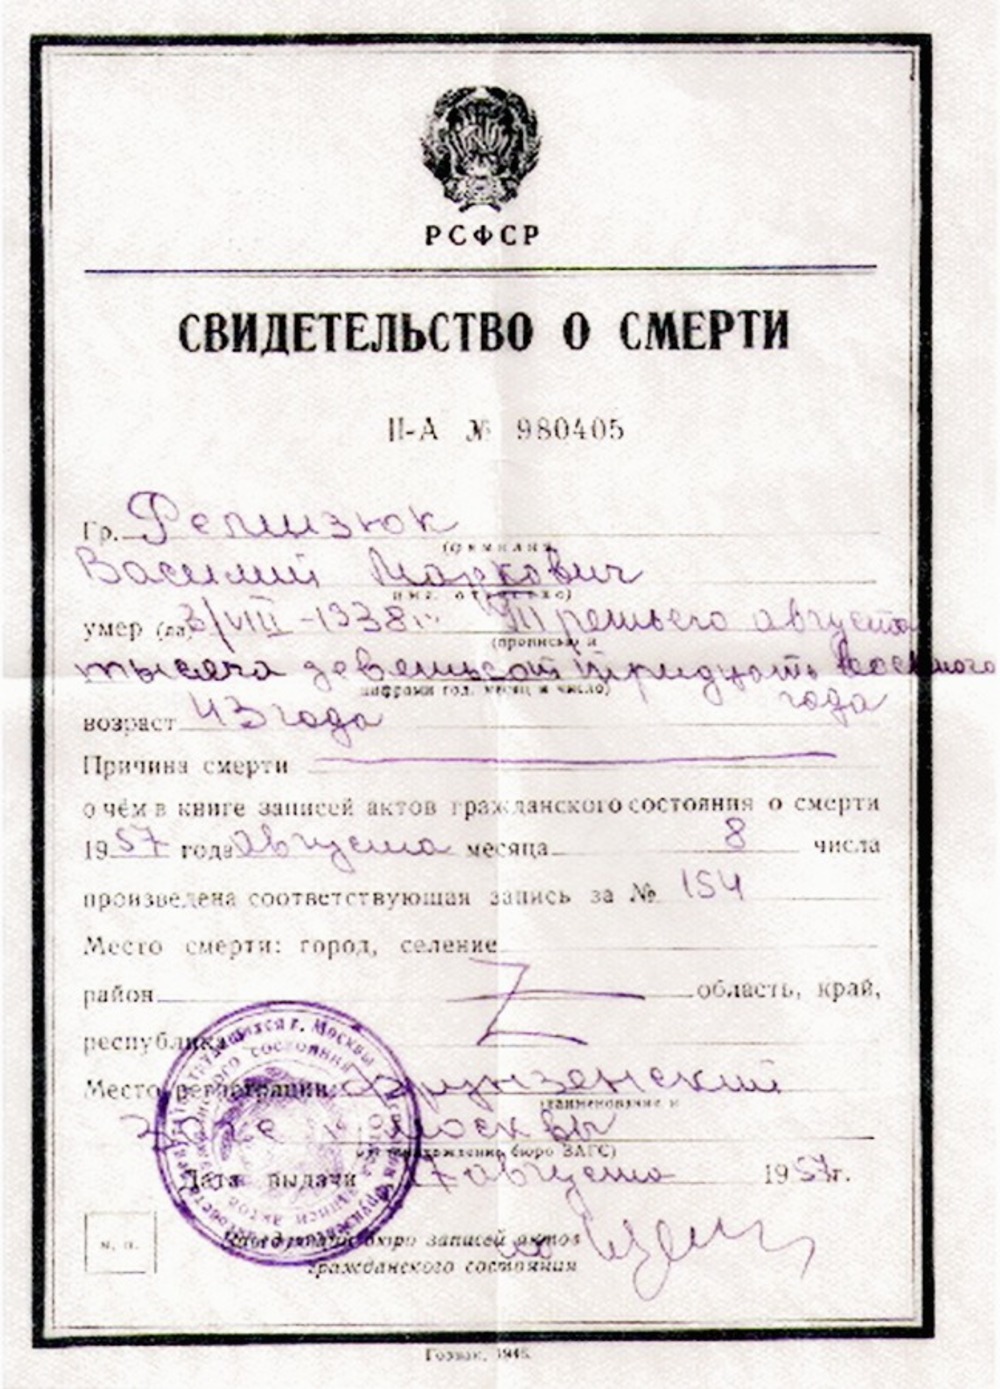 РСФСР
СВИДЕТЕЛЬСТВО О СМЕРТИ
II-А № 980405
Гр. Репизюк
(фамилия)
Василий Маркович
имя, отчество)
умер (ла) 3/VIII -1938г. Третьего августа
(прописью и
тысяча девятьсот тридцать восьмого
цифрами год, месяц и число)
года
возраст 43 года
Причина смерти
о чём в книге записей актов гражданского состояния о смерти
1957 года августа месяца 8 числа
произведена соответствующая запись за № 154
Место смерти: город, селение
район область, край,
республика
Место регистрации Фрунзенский
(наименование и
Загс г. Москвы
местонахождение бюро ЗАГС)
Дата выдачи 17 августа 1957г.
м. п.
Заведующий бюро записей актов
гражданского состояния
Гознак, 1946.